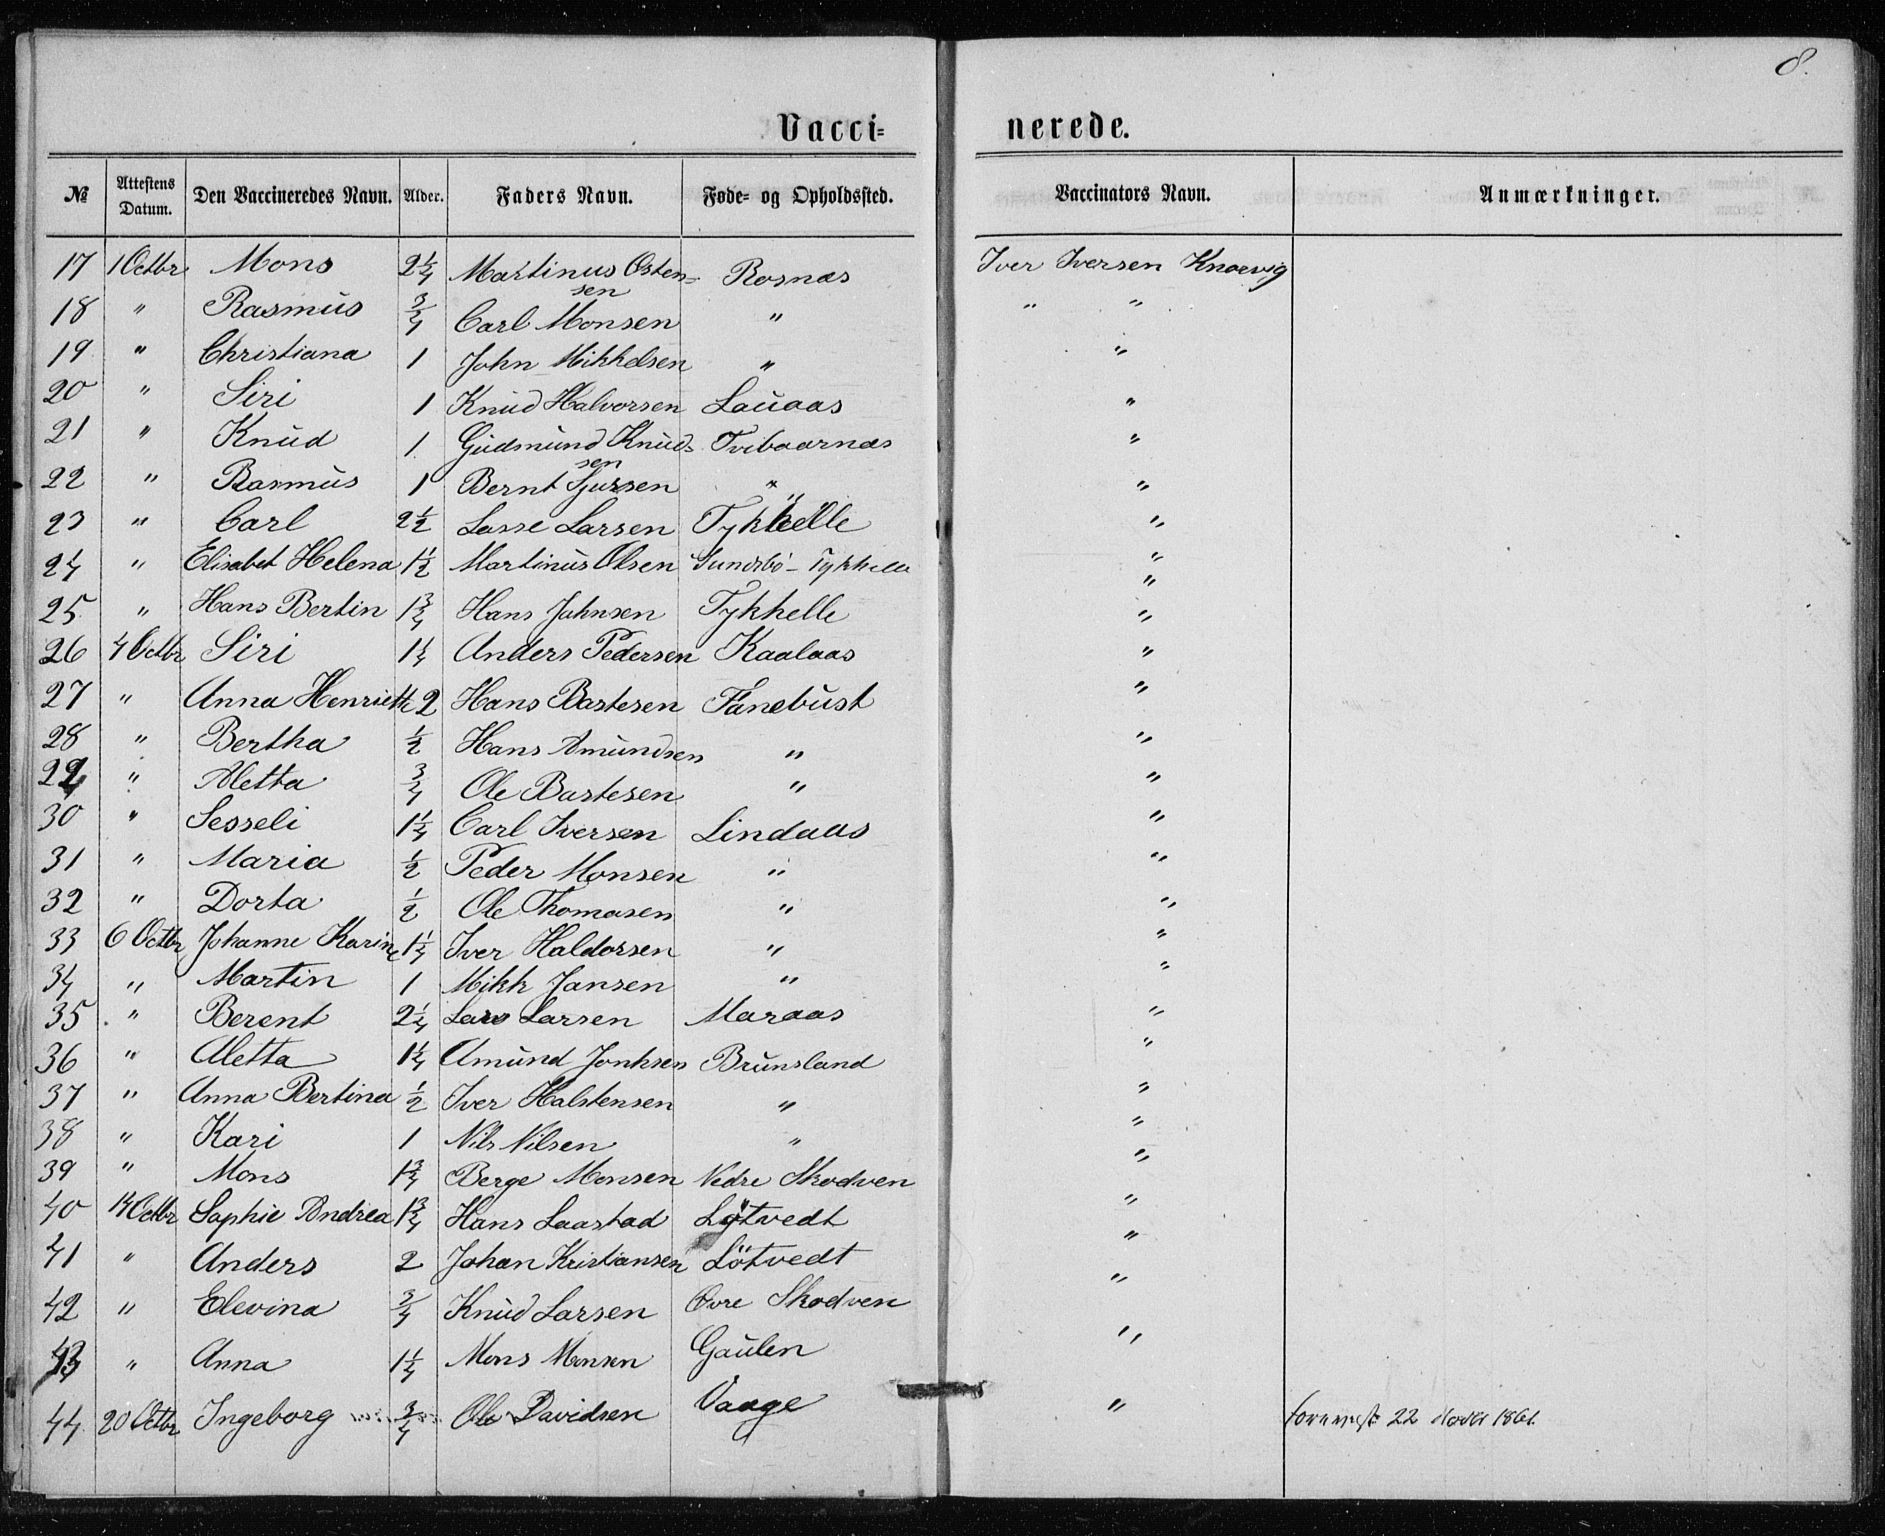 8.
Vacci= nerede.
№ Attestens Datum. Den Vaccineredes Navn. Alder. Faders Navn. Føde- og Opholdssted. Vaccinators Navn. Anmærkninger.
17 1 Octbr Mons 2¼ Martinus Osten=sen Rosnæs Iver Iversen Knarvig
18 " Rasmus ¾ Carl Monsen " " "
19 " Christiana 1 John Mikkelsen " "
20 " Siri 1 Knud Halvorsen Lauaas "
21 " Knud 1 Gudmund Knud=sen Tveboarnæs "
22 " Rasmus 1 Bernt Sjursen " "
23 " Carl 2½ Lasse Larsen Tykhelle "
24 " Elisabet Helena 1½ Martinus Olsen Sundsbö - Tykhelle "
25 " Hans Bertin 1¾ Hans Johnsen Tykhelle "
26 4 Octbr Siri 1¼ Anders Pedersen Kaalaas "
27 " Anna Henriette 2 Hans Bastesen Fanebust "
28 " Bertha ½ Hans Amundsen " "
29 " Aletta ¾ Ole Bastesen " "
30 " Sesseli 1¼ Carl Iversen Lindaas "
31 " Maria ½ Peder Monsen " "
32 " Dorta ½ Ole Thomasen " "
33 6 Octbr Johanne Karine 1¼ Iver Haldorsen " "
34 " Martin 1 Mikk Jansen " "
35 " Berent 2¼ Lars Larsen Maraas "
36 " Aletta 1¼ Amund Jonhsen Brunsland "
37 " Anna Bertina ½ Iver Halstensen " "
38 " Kari 1 Nils Nilsen " "
39 " Mons 1¾ Berge Monsen Nedre Skodven "
40 14 Octbr Sophie Andrea 1¾ Hans Laastad Lötvedt "
41 " Anders 2 Johan Kristiansen Lötvedt "
42 " Elevina ¾ Knud Larsen Ovre Skodven "
43 " Anna 1¼ Mons Monsen Gaulen "
44 20 Octbr Ingeborg ¾ Ole Davidsen Vaage " 22 Novbr 1861.